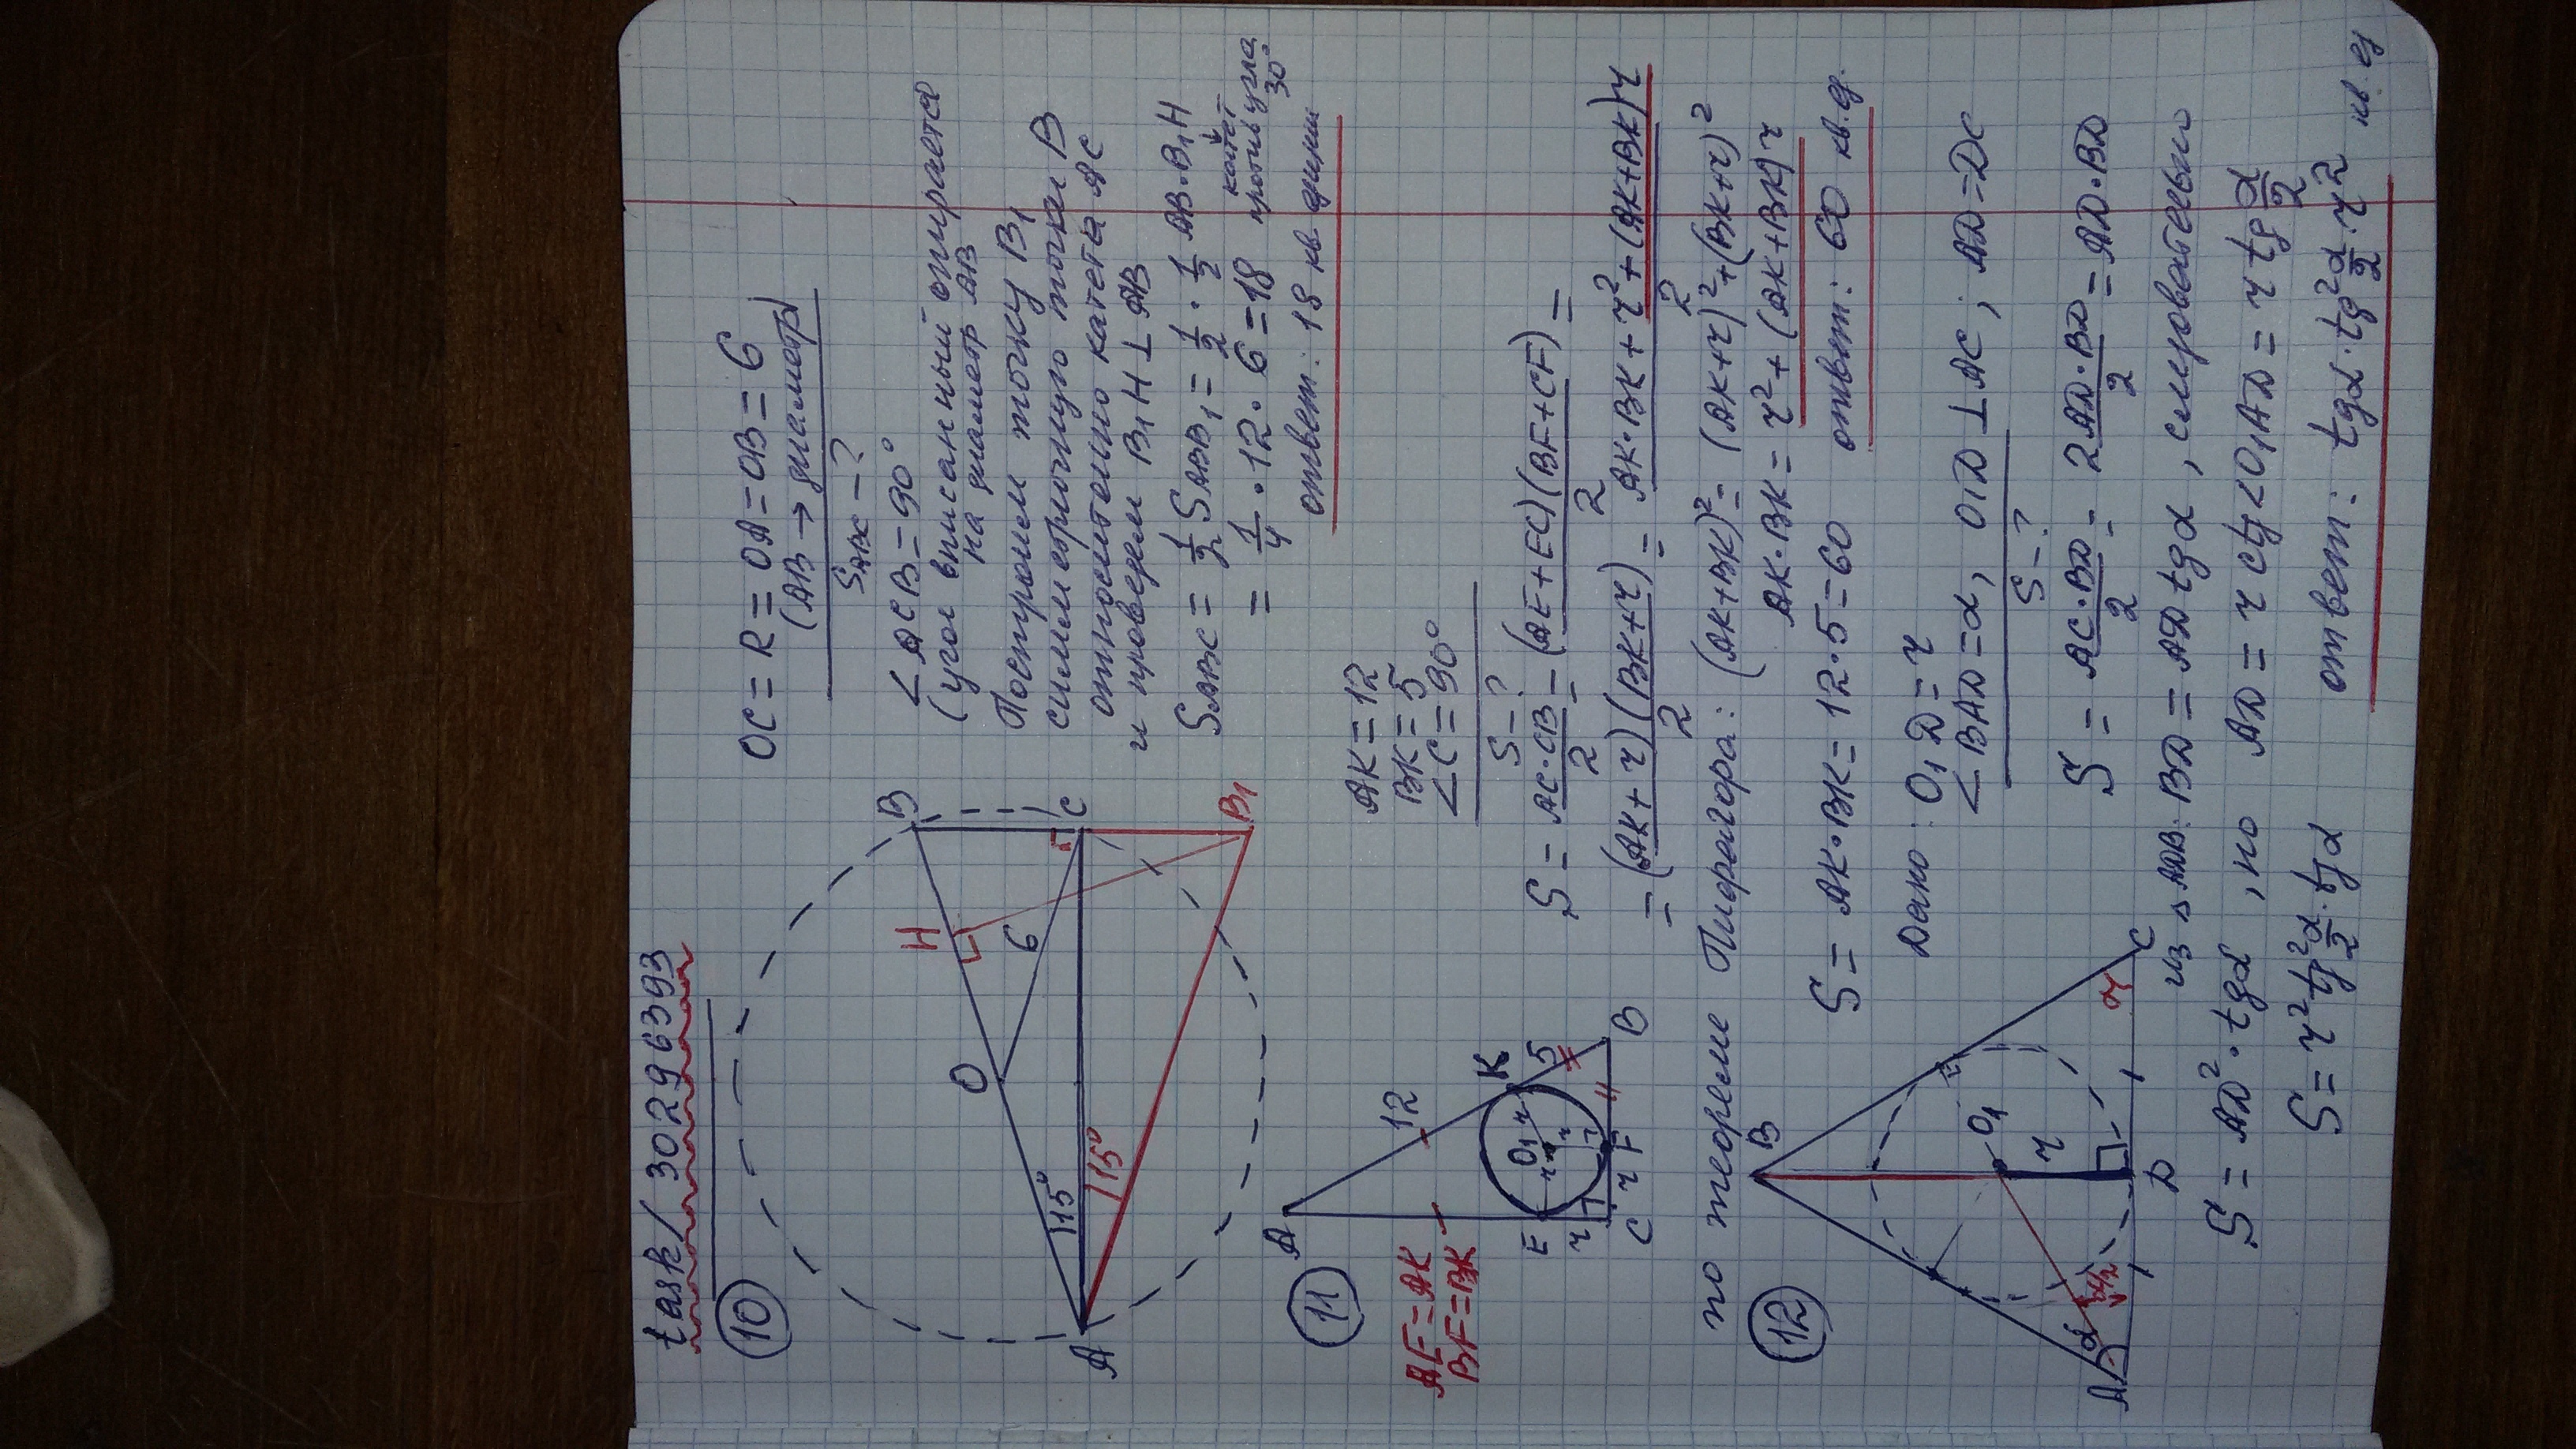 task/ 30296393
10
OC = R = OA = OB = 6
(AB → диаметр)
S_ABC — ?
∠ACB = 90°
(угол вписанный опирается
на диаметр AB
Построим точку B₁
симметричную точки B
относительно катета AC
и проведем B₁H ⊥ AB
S_ABC = 1/2 S_ABB₁ = 1/2 · 1/2 AB · B₁H
= 1/4 · 12 · 6 = 18
катет против угла 30°
ответ: 18 кв. единиц
A
O
H
B
C
B₁
6
15°
15°
11
AK = 12
BK = 5
∠C = 90°
S — ?
AE = AK
BF = BK
A
12
K
5
B
E
r
C
r
F
O₁
r
S = AC · CB / 2 = (AE + EC)(BF + CF) / 2 =
= (AK + r)(BK + r) / 2 = AK · BK + r² + (AK + BK)r / 2
по теореме Пифагора: (AK + BK)² = (AK + r)² + (BK + r)²
AK · BK = r² + (AK + BK)r
S = AK · BK = 12 · 5 = 60
ответ: 60 кв. ед.
12
Дано: O₁D = r
∠BAD = α, O₁D ⊥ AC; AD = DC
S — ?
B
O₁
r
A
α
α/2
D
C
S = AC · BD / 2 = 2AD · BD / 2 = AD · BD
из △ ADB: BD = AD tgα, следовательно
S = AD² · tgα, но AD = r ctg∠O₁AD = r tg α/2
S = r² tg² α/2 · tgα
ответ: tgα · tg² α/2 · r² кв. ед